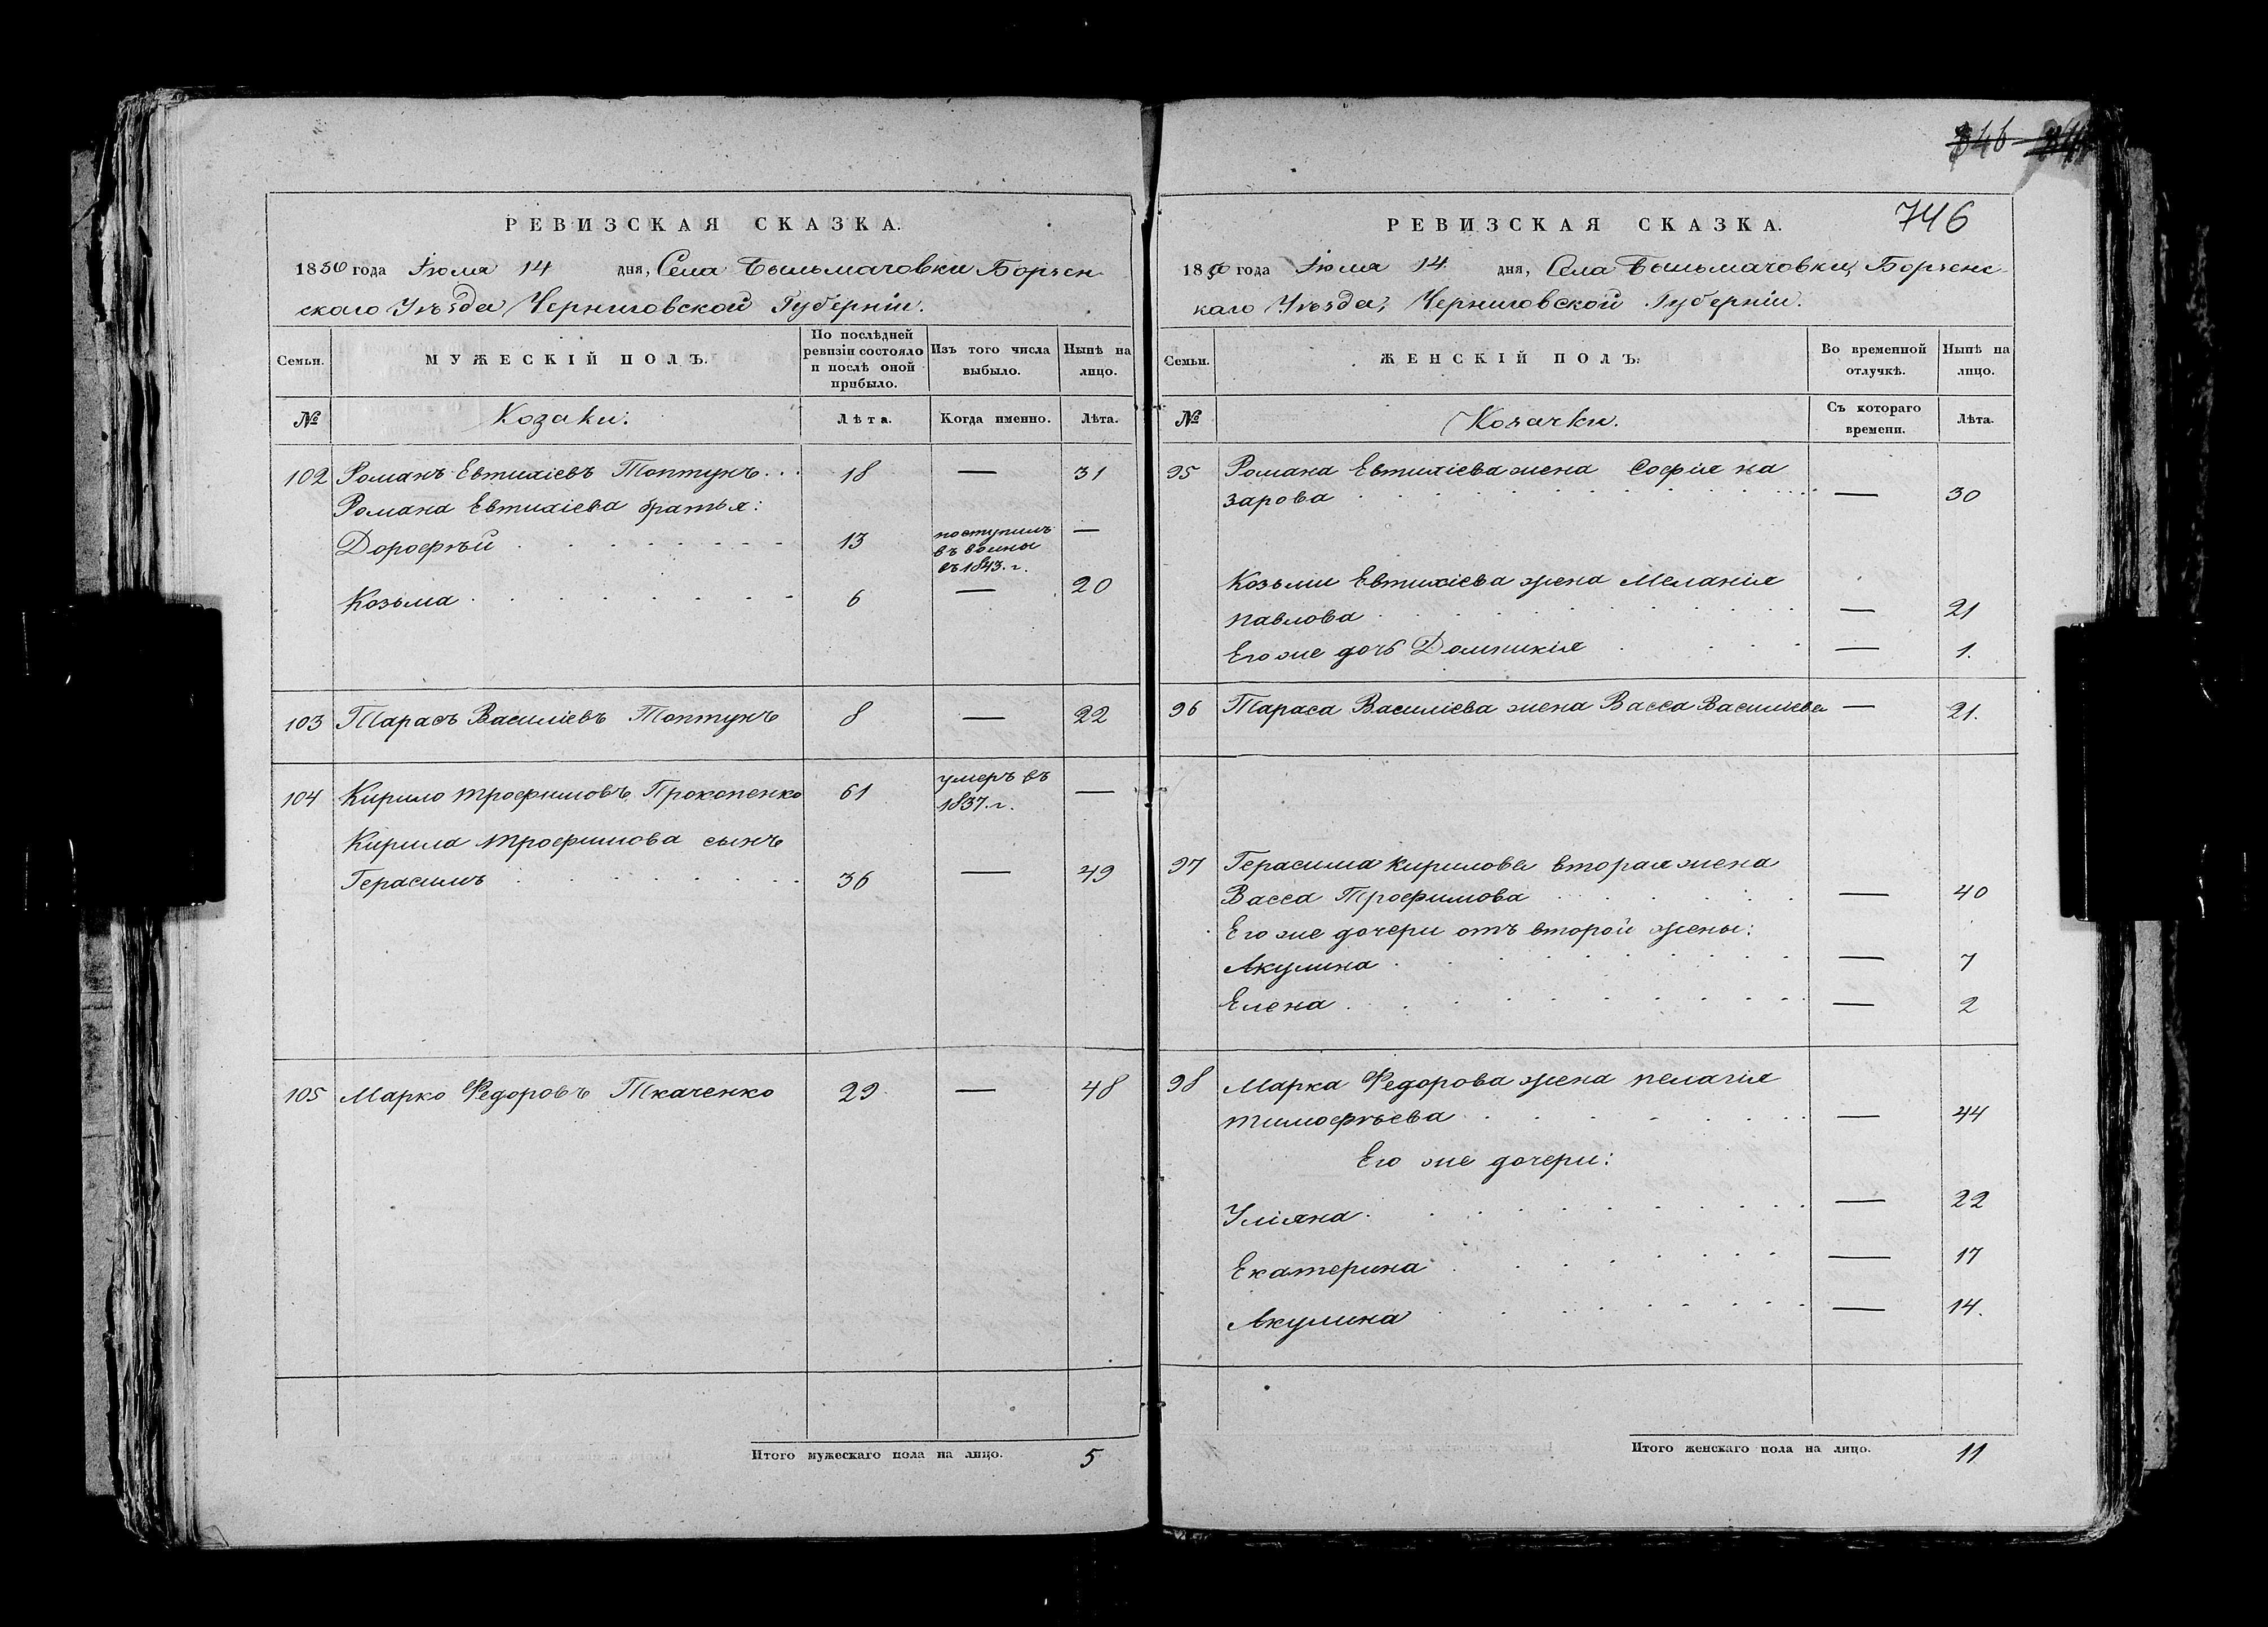 РЕВИЗСКАЯ СКАЗКА.
1850 года Іюля 14 дня, Села Быльмачовки Борзен
скаго Уѣзда Черниговской Губерніи.
Семьи.
МУЖЕСКІЙ ПОЛЪ.
По послѣдней ревизіи состояло и послѣ оной прибыло.
Изъ того числа выбыло.
Нынѣ на лицо.
№
Козаки.
Лѣта.
Когда именно.
Лѣта.
102 Романъ Евтихіевъ Топтунъ 18 — 31
Романа Евтихіева братья:
Дорофѣй 13 поступилъ въ воины въ 1843. г. —
Козьма 6 — 20
103 Тарасъ Василіевъ Топтунъ 8 — 22
104 Кирило Трофимовъ Прокопенко 61 умеръ въ 1837. г. —
Кирила Трофимова сынъ
Герасимъ 36 — 49
105 Марко Федоровъ Ткаченко 29 — 48
Итого мужескаго пола на лицо. 5
746
РЕВИЗСКАЯ СКАЗКА.
1850 года Іюля 14 дня, Села Быльмачовки, Борзенс
каго Уѣзда, Черниговской Губерніи.
Семьи.
ЖЕНСКІЙ ПОЛЪ.
Во временной отлучкѣ.
Нынѣ на лицо.
№
Козачки.
Съ котораго времени.
Лѣта.
95 Романа Евтихіева жена Софія на
зарова — 30
Козьми Евтихіева жена Меланія
павлова — 21
Его же дочь Домникія — 1.
96 Тараса Василіева жена Васса Василіева — 21.
97 Герасима Кирилова вторая жена
Васса Трофимова — 40
Его же дочери отъ второй жены:
Акулина — 7
Елена — 2
98 Марка Федорова жена пелагія
тимофѣева — 44
Его же дочери:
Уліяна — 22
Екатерина — 17
Акулина — 14.
Итого женскаго пола на лицо. 11